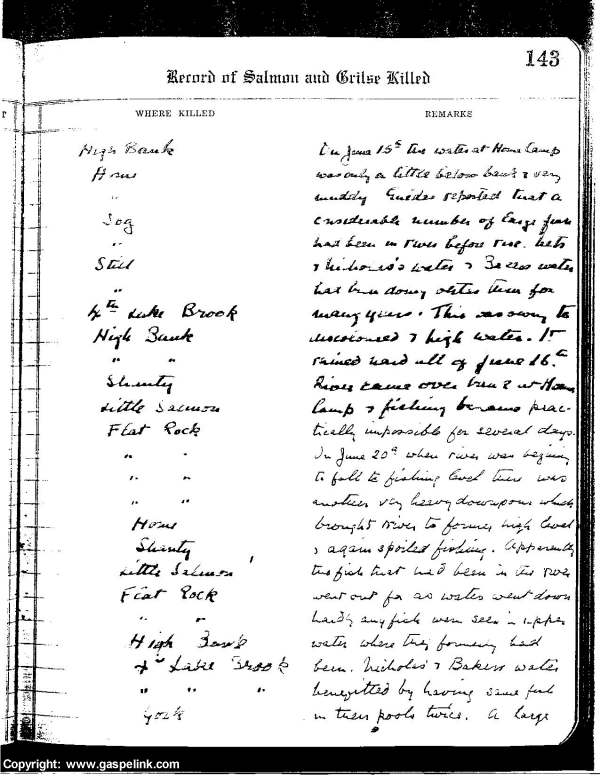 143
Record of Salmon and Grilse Killed
WHERE KILLED
REMARKS
High Bank
Home
"
Jog
"
Still
"
4th Lake Brook
High Bank
" "
Shanty
Little Salmon
Flat Rock
" "
" "
" "
Home
Shanty
Little Salmon
Flat Rock
"
High Bank
4th Lake Brook
" " "
On June 15th the water at Home Camp
was only a little below bank & very
muddy Guides reported that a
considerable number of large fish
had been in river before rise. Nets
& Nicholas's water & Bakers water
had been doing better than for
many years. This was owing to
discolored & high water. It
rained hard all of June 16th
River came over bank at Home
Camp & fishing became prac-
tically impossible for several days.
On June 20th when river was begining
to fall to fishing level there was
another very heavy downpour which
brought river to former high level
& again spoiled fishing. Apparently
the fish that had been in the river
went out for as water went down
hardly any fish were seen in upper
water where they formerly had
been. Nicholas' & Bakers water
benefitted by having same fish
in their pools twice. A large
Copyright: www.gaspelink.com